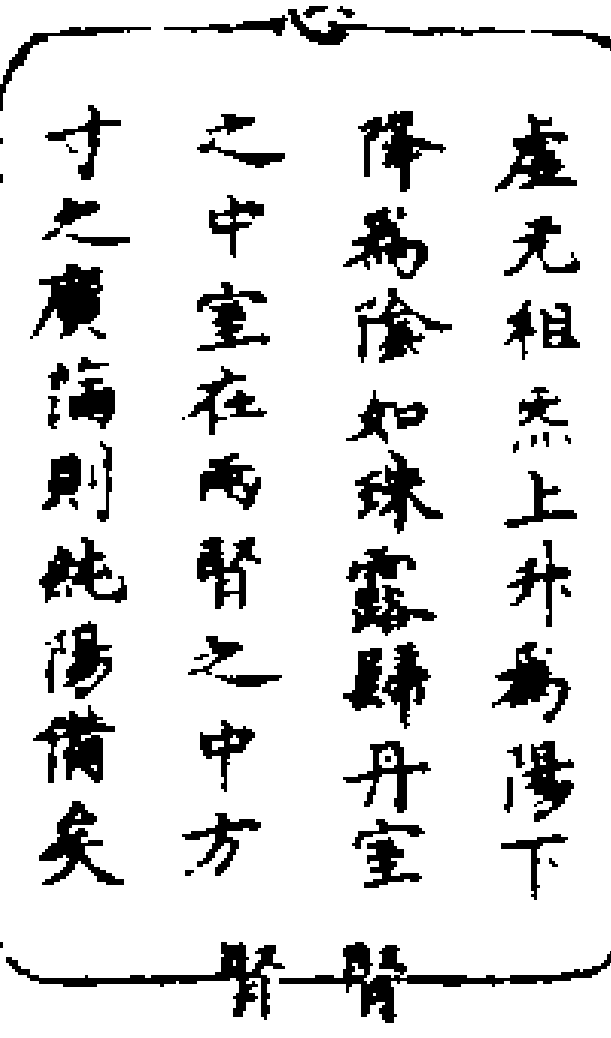 心
虛无祖炁上升為陽下
降為陰如珠露歸丹室
之中室在兩腎之中方
寸之廣滿則純陽備矣
腎 腎